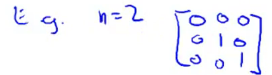 E.g. n=2 [0 0 0
0 1 0
0 0 1]